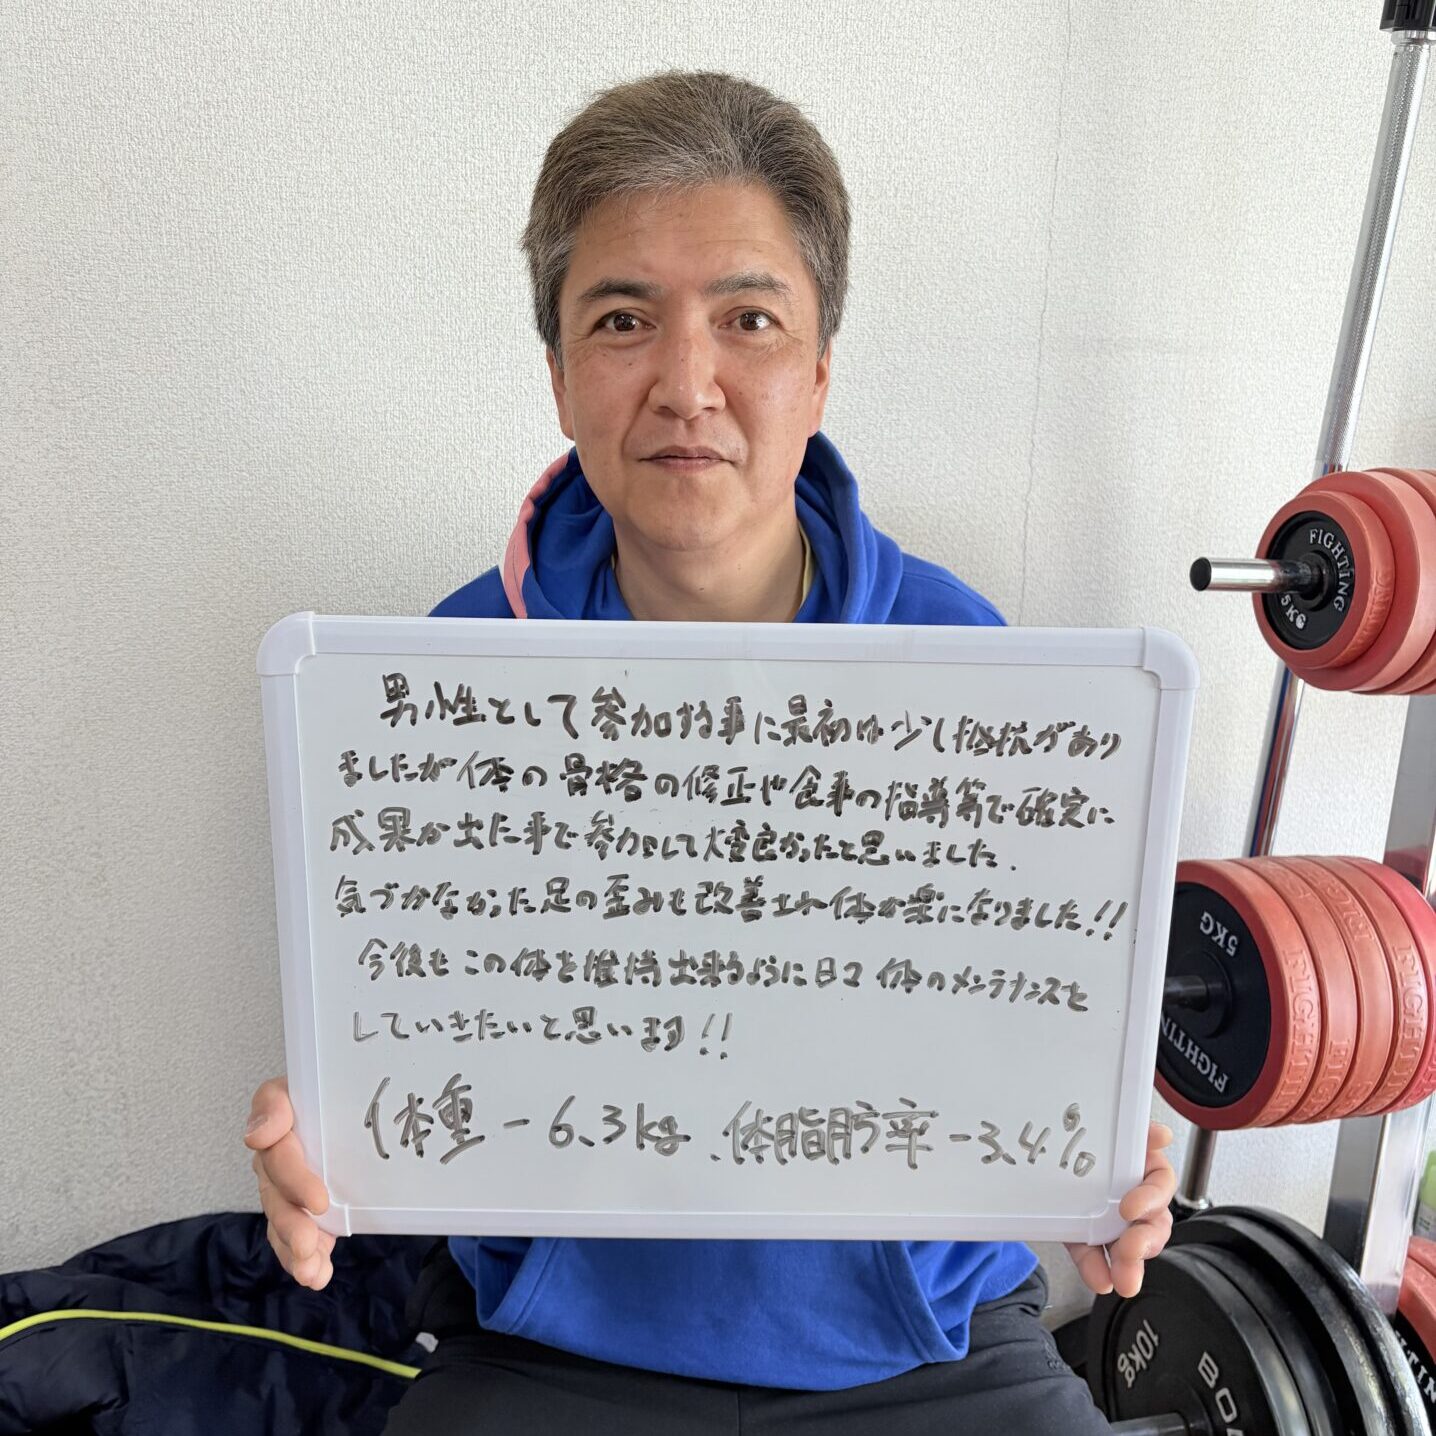 男性として参加する事に最初は少し抵抗があり
ましたが体の骨格の修正や食事の指導等で確実に
成果が出た事で参加して大変良かったと思いました.
気づかなかった足の歪みも改善され体が楽になりました!!
今後もこの体を維持出来るように日々体のメンテナンスを
していきたいと思います!!
体重-6.3kg、体脂肪率-3.4%
FIGHTING
5KG
5KG
FIGHTING
FIGHTING
10KG